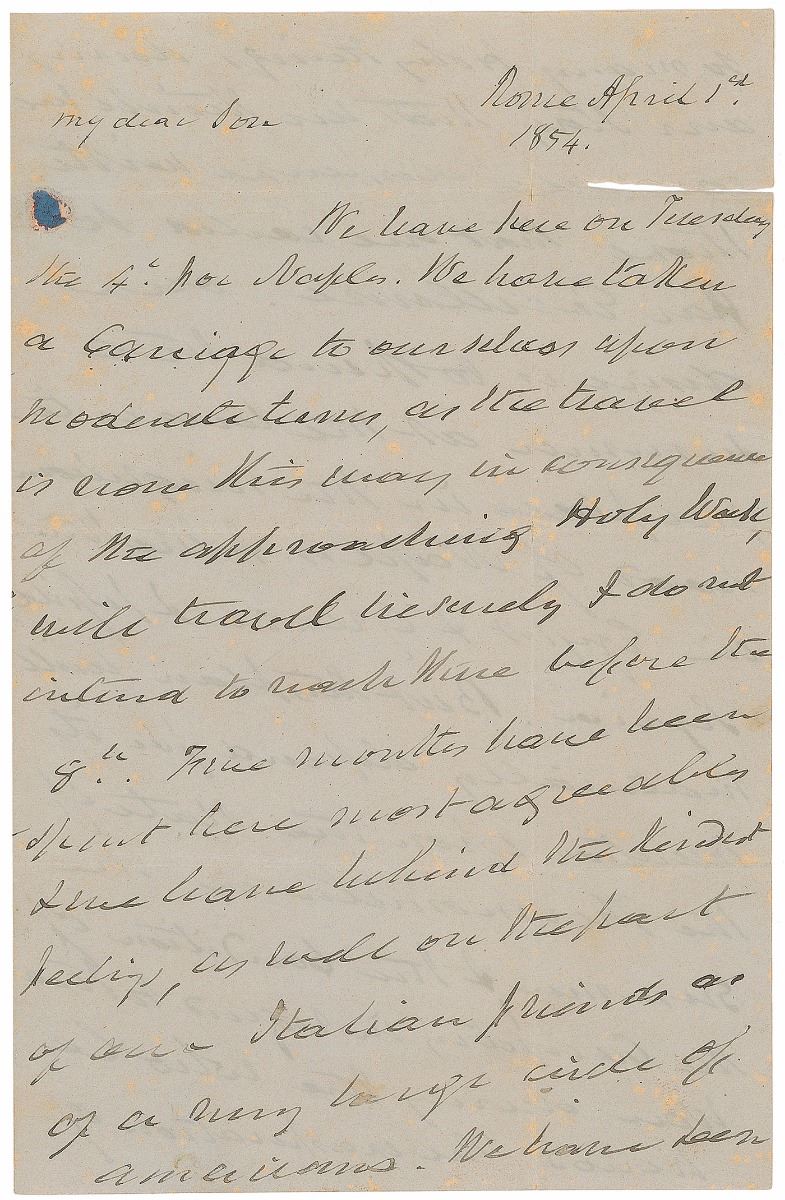 Rome April 1st.
1854.
my dear Son
We leave here on Tuesday
the 4th. for Naples. We have taken
a Carriage to ourselves upon
moderate terms, as the travel
is now this way in consequence
of the approaching Holy Week,
will travel liesurely & do not
intend to reach there before the
8th. Five months have been
spent here most agreeably
& we leave behind the kindest
feelings, as well on the part
of our Italian friends as
of a very large circle of
americans. We have been